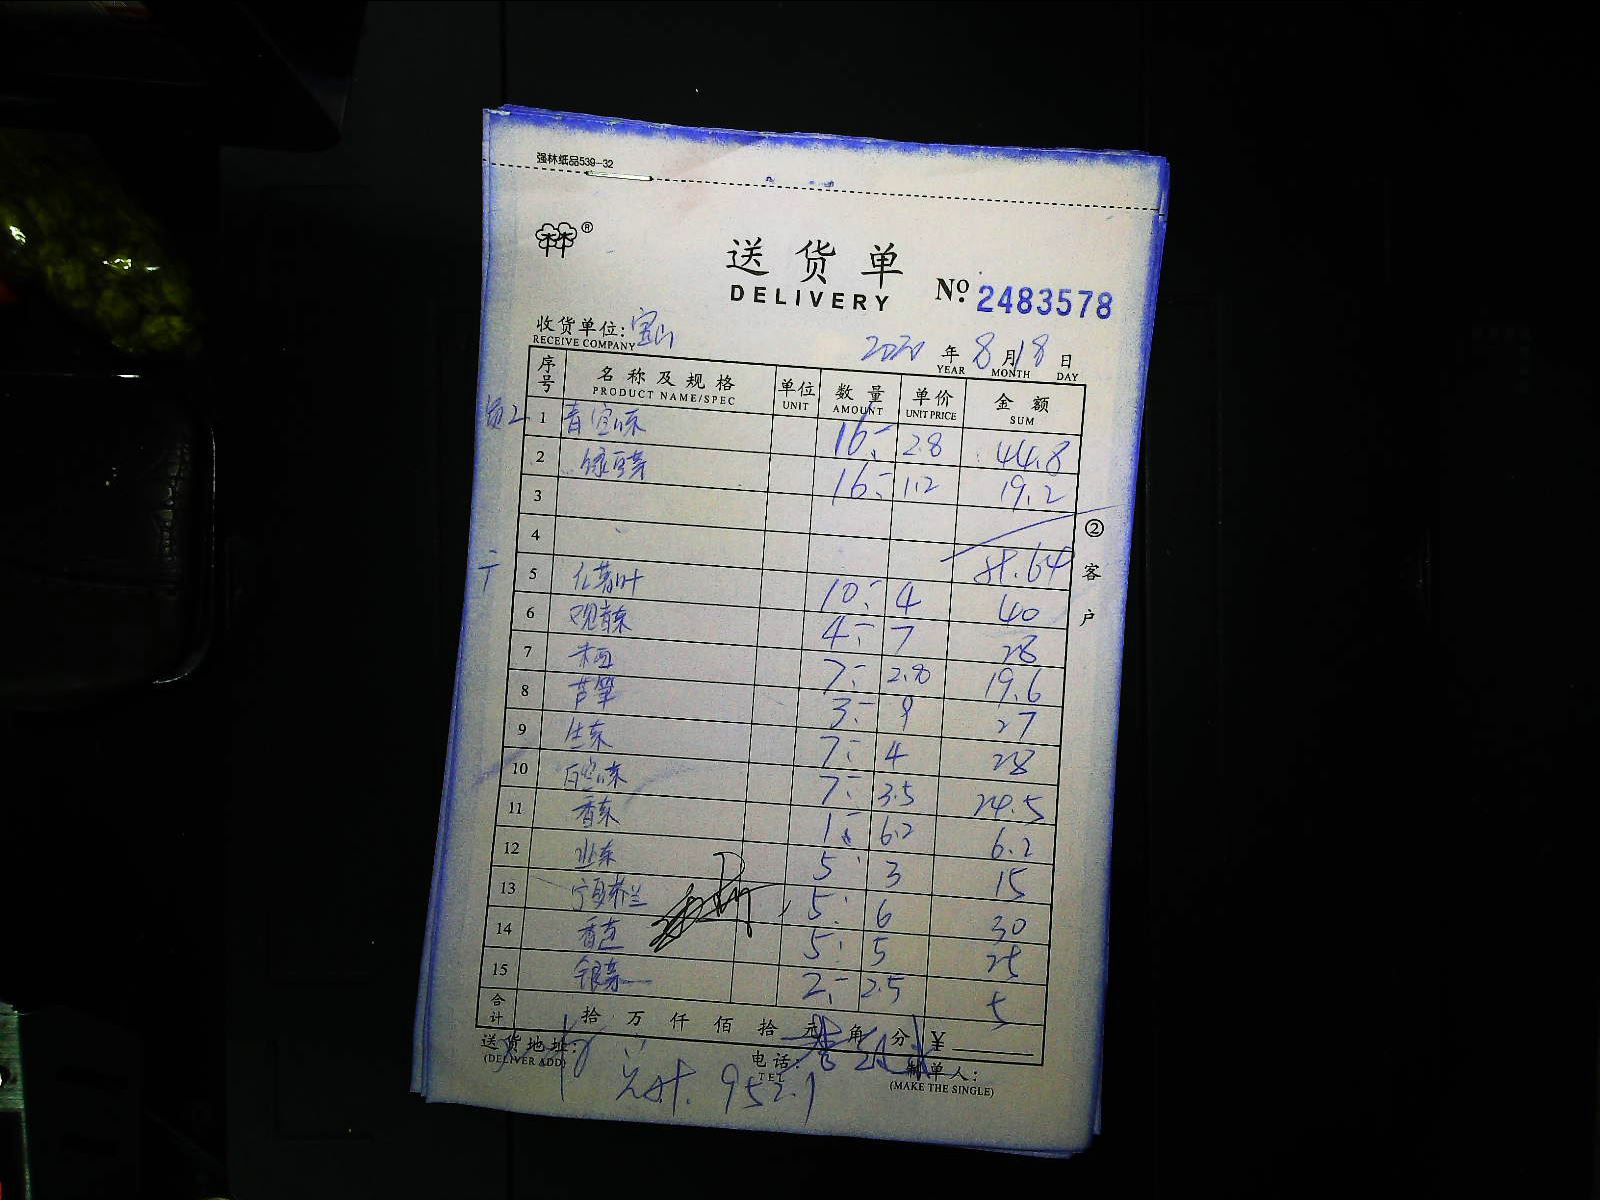 强林纸品539-32
林®
送货单
DELIVERY
No. 2483578
收货单位: 宝山
RECEIVE COMPANY
2020 年 8 月 18 日
YEAR MONTH DAY
序号 名称及规格 单位 数量 单价 金额
PRODUCT NAME/SPEC UNIT AMOUNT UNIT PRICE SUM
员工 1 16 2.8 44.8
2 绿豆芽 16 1.2 19.2
3
4 计.64
5 10 4 40
6 4 7 28
7 7 2.8 19.6
8 芦笋 3 9 27
9 生菜 7 4 28
10 7 3.5 24.5
11 香菜 1 6.2 6.2
12 5 3 15
13 5 6 30
14 5 5 25
15 2 2.5 5
合计 拾 万 仟 佰 拾 元 角 分 ¥
送货地址:
(DELIVER ADD)
电话:
TEL
制单人:
(MAKE THE SINGLE)
952.1
② 客户